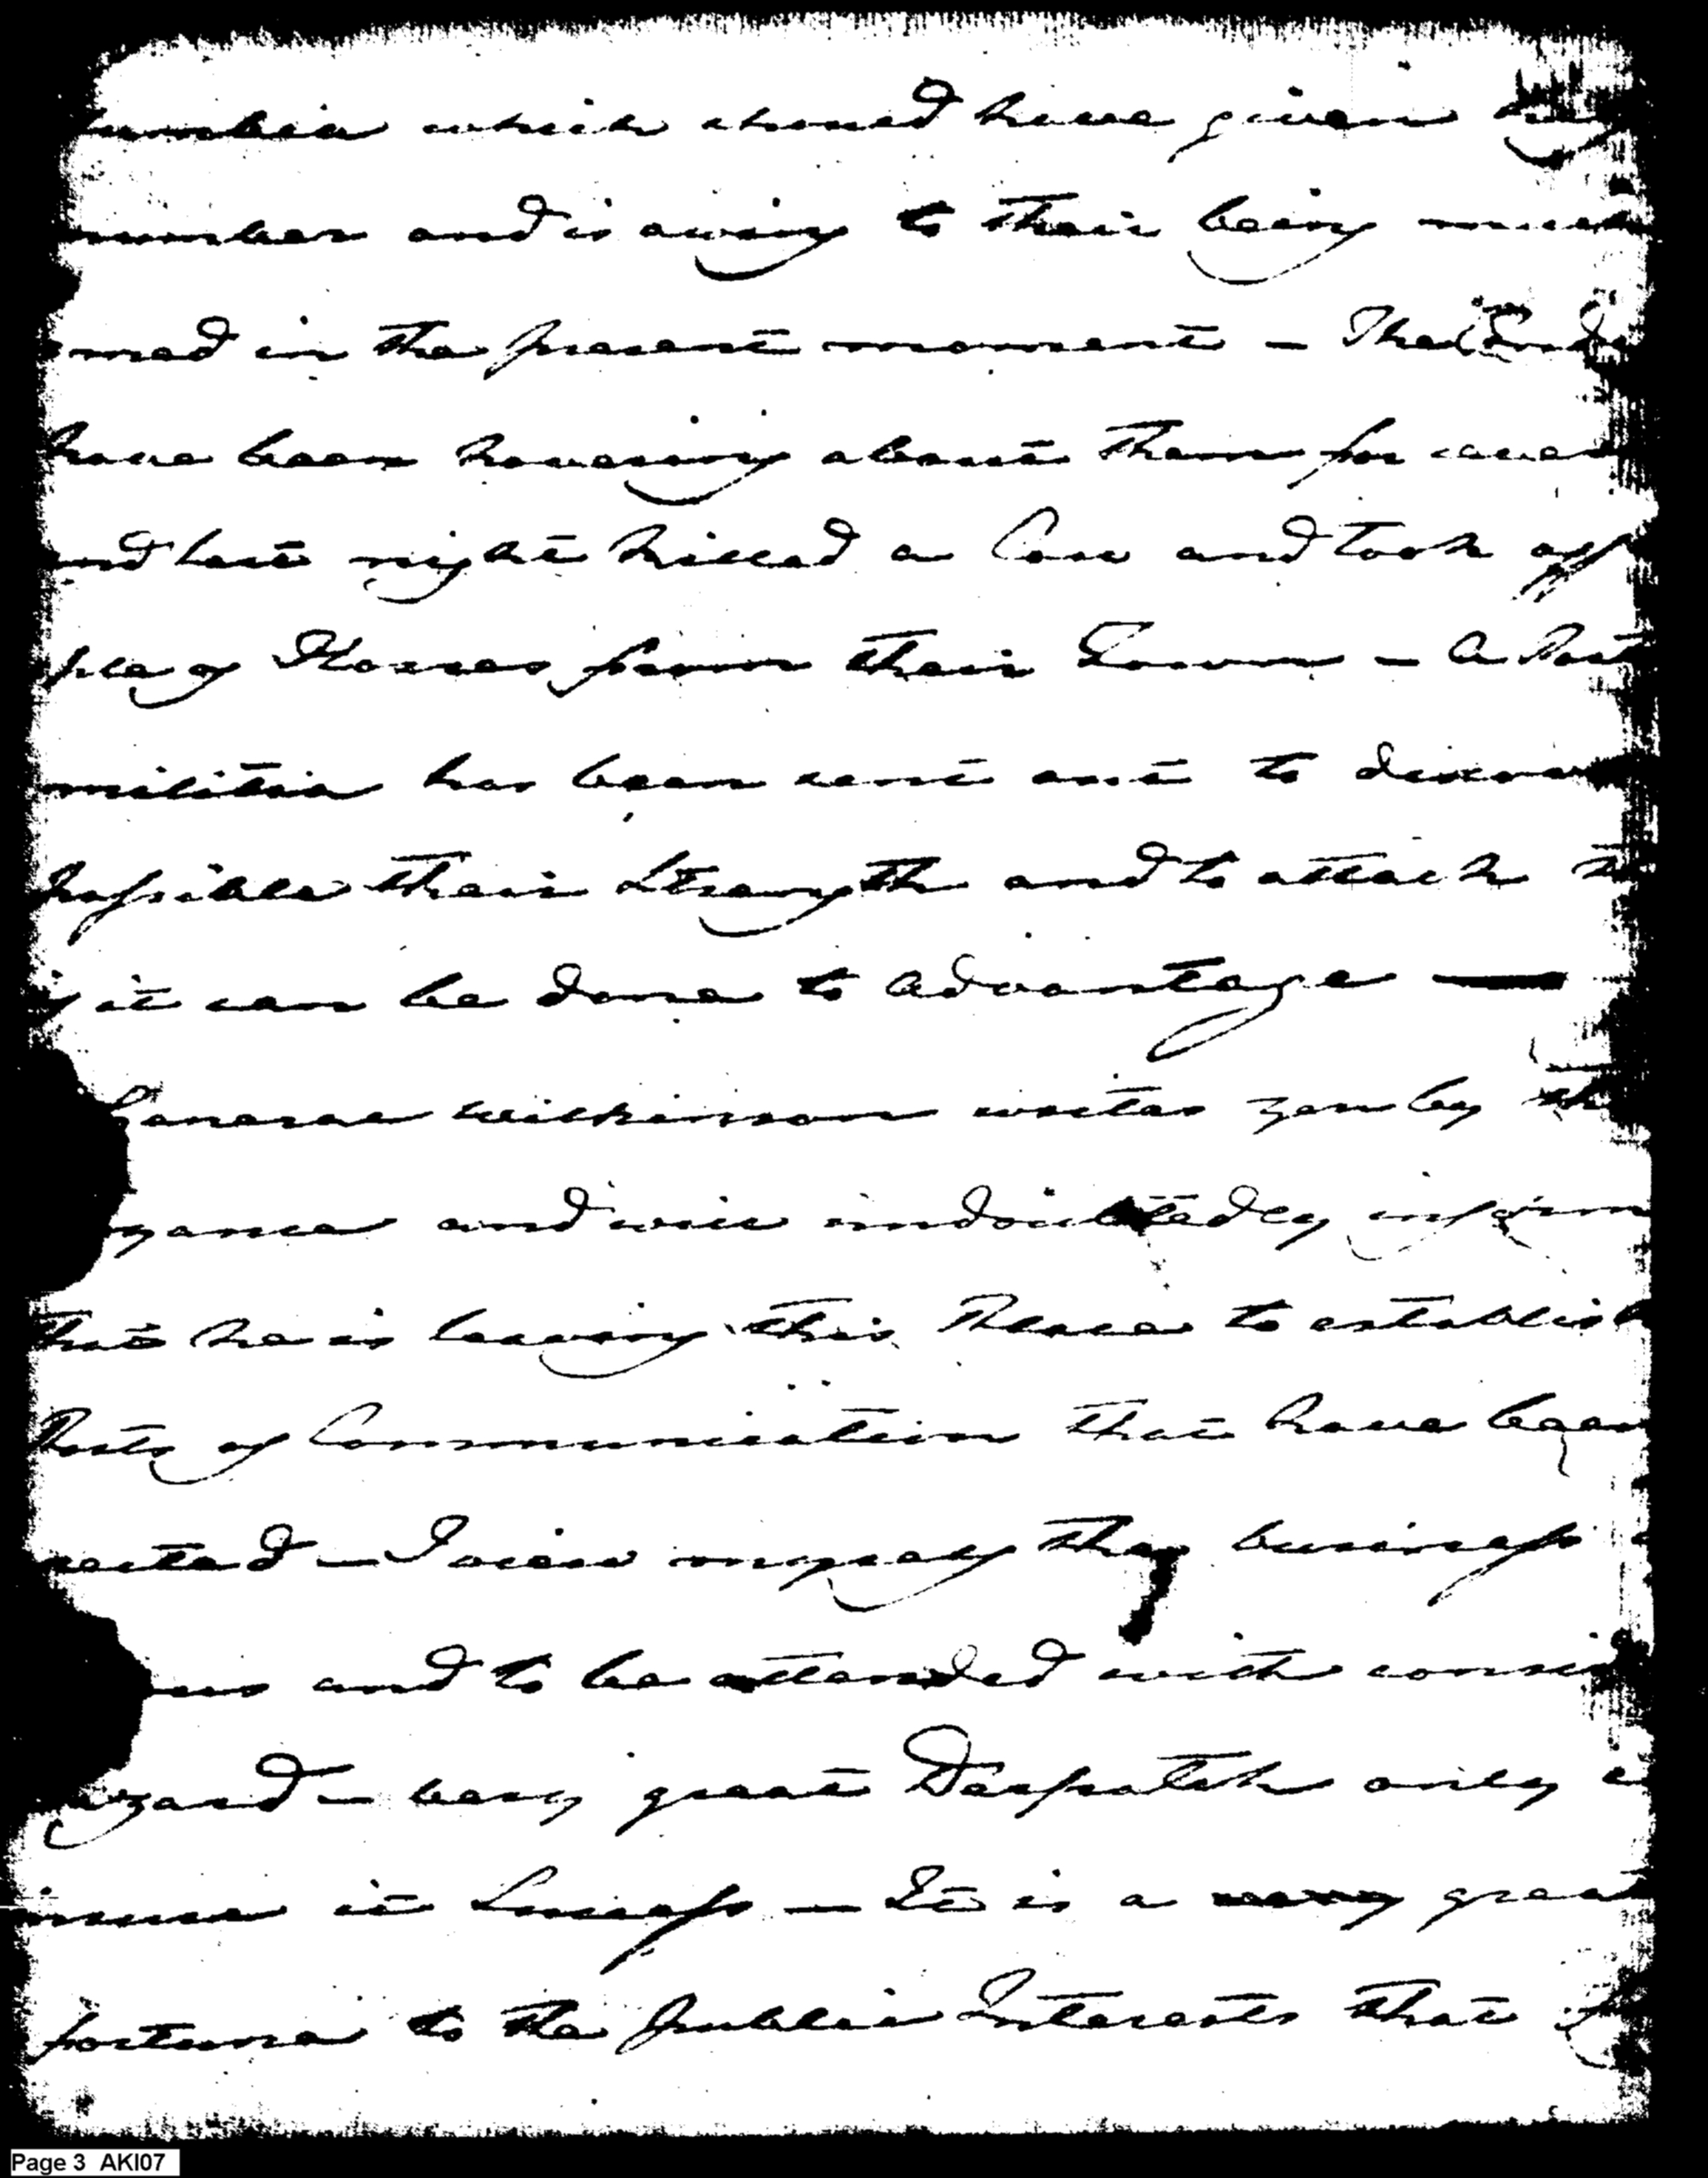 lumbia which should have given
number and is owing to their being much
med in the present moment – The
have been hovering about them for
and last night killed a Cow and took off
ple of Horses from their Town – a
militia has been sent out to discover
possible their Strength and to attach
if it can be done to advantage —
General Wilkinson writes you by
yance and will undoubtedly inform
that he is leaving this Place to establish
Posts of Communication that have been
rected – I view myself the business
ous and to be attended with consid
azard – very great Despatch only
insure it Success – It is a very great
fortune to the Public Interests that
Page 3 AKI07